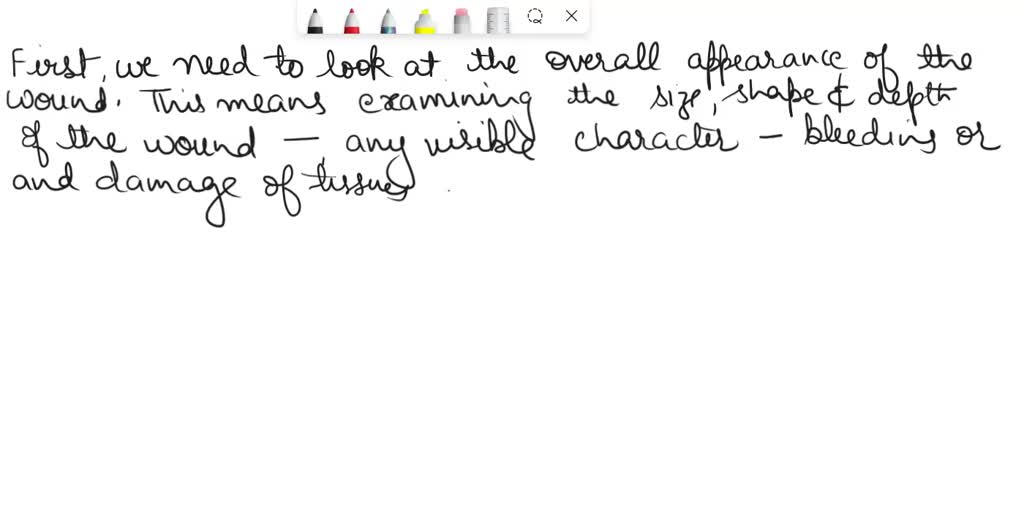 First, we need to look at the overall appearance of the
wound. This means examining the size, shape & depth
of the wound – any visible character – bleeding or
and damage of tissues